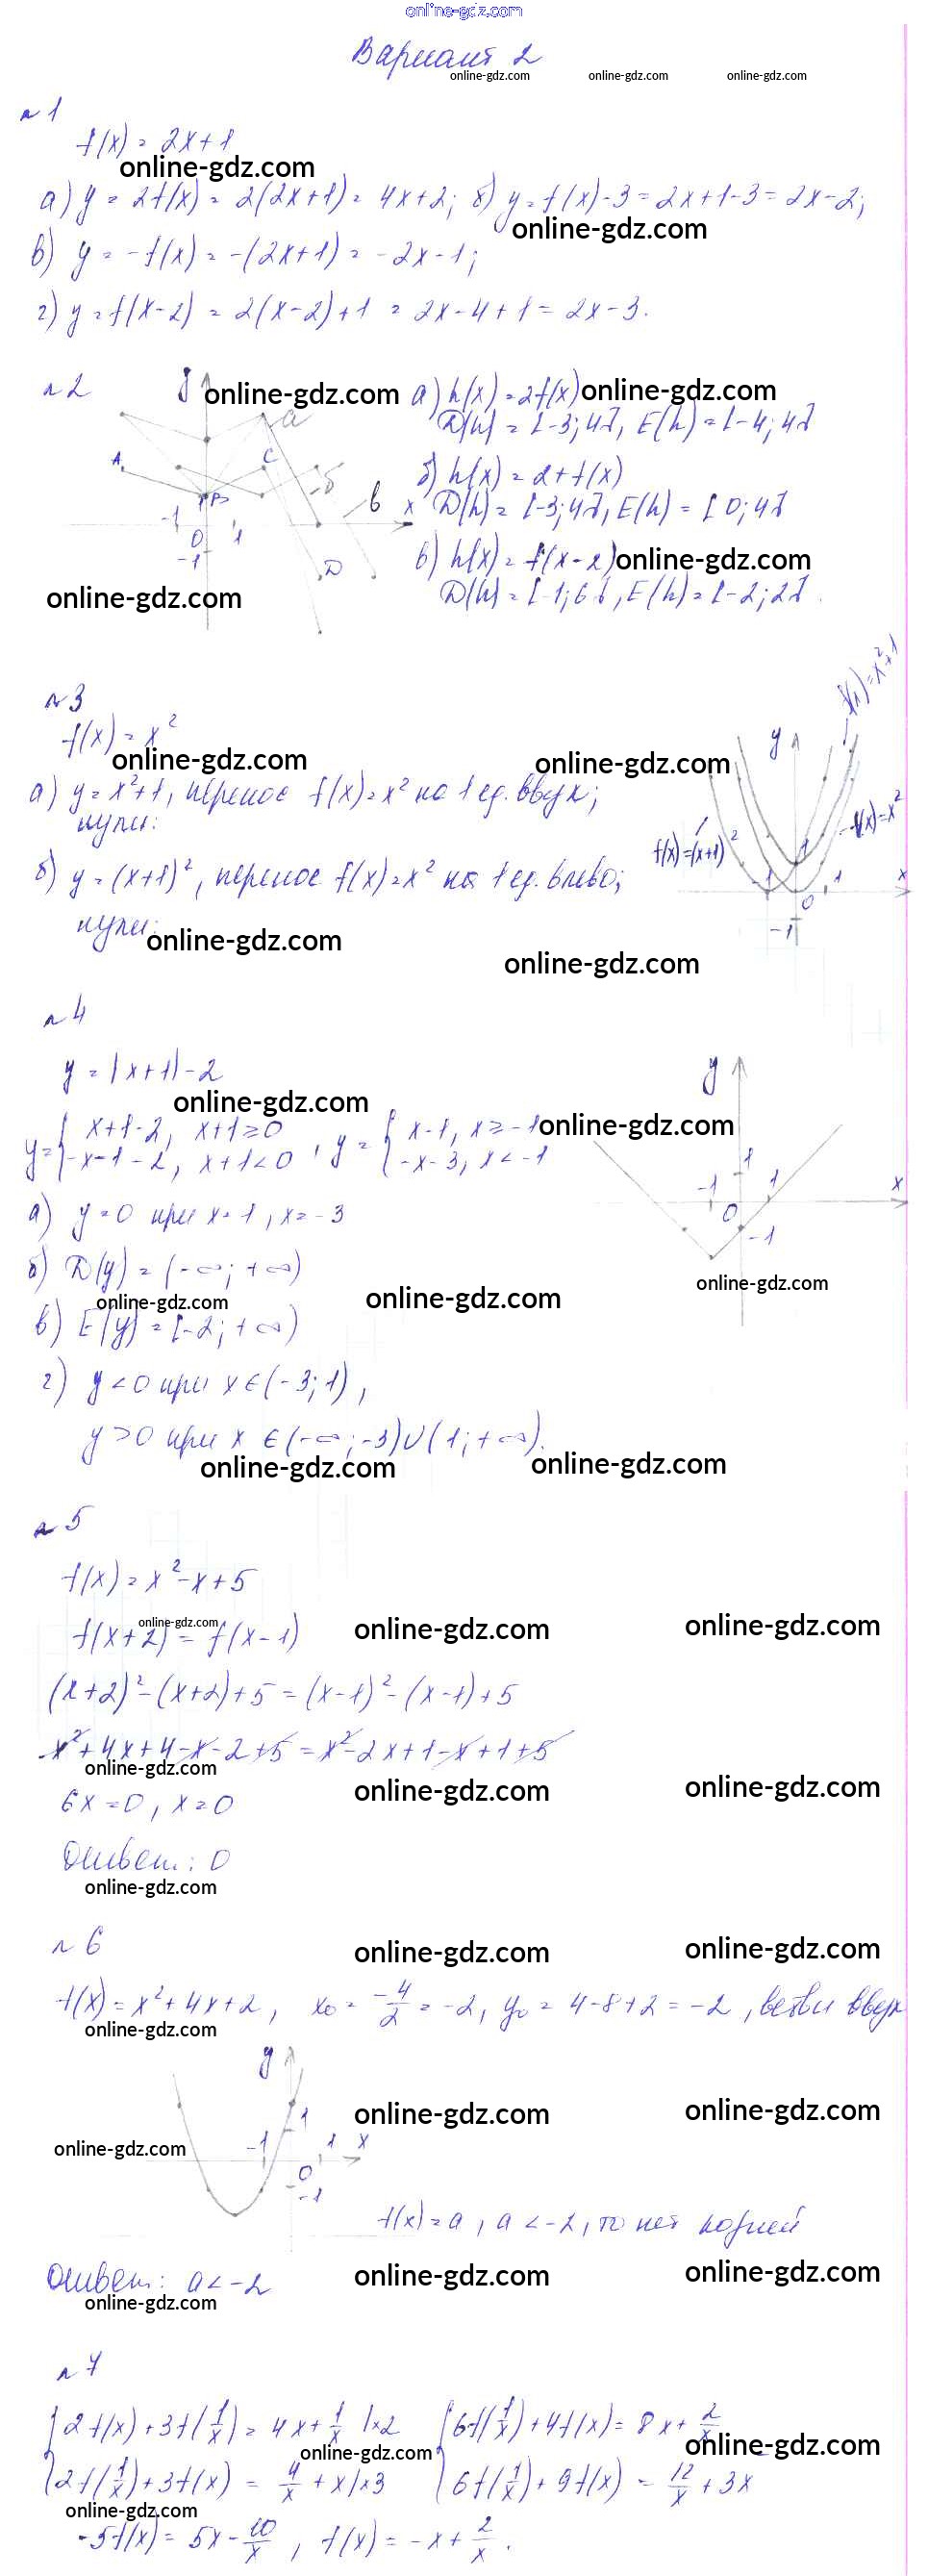 online-gdz.com
Вариант 2
online-gdz.com online-gdz.com online-gdz.com
№1
f(x) = 2x+1
online-gdz.com
а) y = 2f(x) = 2(2x+1) = 4x+2; б) y = f(x)-3 = 2x+1-3 = 2x-2;
online-gdz.com
в) y = -f(x) = -(2x+1) = -2x-1;
г) y = f(x-2) = 2(x-2)+1 = 2x-4+1 = 2x-3.
№2
y online-gdz.com а) h(x) = 2f(x) online-gdz.com
a D(h) = [-3;4], E(h) = [-4;4]
A C б б) h(x) = 2+f(x)
B в x D(h) = [-3;4], E(h) = [0;4]
-1 0 1
-1 в) h(x) = f(x-2) online-gdz.com
D D(h) = [-1;6], E(h) = [-2;2].
online-gdz.com
№3
f(x) = x²
f(x)=x²+1
online-gdz.com online-gdz.com y
а) y = x²+1, перенос f(x)=x² на 1 ед. вверх;
нули:
f(x)=(x+1)² 1 f(x)=x²
б) y = (x+1)², перенос f(x)=x² на 1 ед. влево;
-1 0 1 x
-1
нули: online-gdz.com
online-gdz.com
№4
y = |x+1|-2
y
online-gdz.com
y = { x+1-2, x+1≥0 , y = { x-1, x≥-1 online-gdz.com
-x-1-2, x+1<0 -x-3, x<-1
1
-1 0 1 x
-1
а) y=0 при x=1, x=-3
б) D(y) = (-∞;+∞)
online-gdz.com online-gdz.com online-gdz.com
в) E(y) = [-2;+∞)
г) y<0 при x∈(-3;1),
y>0 при x∈(-∞;-3)∪(1;+∞).
online-gdz.com online-gdz.com
№5
f(x) = x²-x+5
online-gdz.com online-gdz.com online-gdz.com
f(x+2) = f(x-1)
(x+2)²-(x+2)+5 = (x-1)²-(x-1)+5
x²+4x+4-x-2+5 = x²-2x+1-x+1+5
online-gdz.com online-gdz.com online-gdz.com
6x=0, x=0
Ответ: 0
online-gdz.com
№6
online-gdz.com online-gdz.com
f(x) = x²+4x+2, x₀ = -4/2 = -2, y₀ = 4-8+2 = -2, ветви вверх
online-gdz.com
y
1 online-gdz.com online-gdz.com
online-gdz.com -1 0 1 x
-1
f(x)=a, a<-2, то нет корней
Ответ: a<-2 online-gdz.com online-gdz.com
online-gdz.com
№7
{ 2f(x)+3f(1/x) = 4x+1/x |×2 { 6f(1/x)+4f(x) = 8x+2/x
online-gdz.com online-gdz.com
2f(1/x)+3f(x) = 4/x+x |×3 6f(1/x)+9f(x) = 12/x+3x
online-gdz.com
-5f(x) = 5x-10/x, f(x) = -x+2/x.